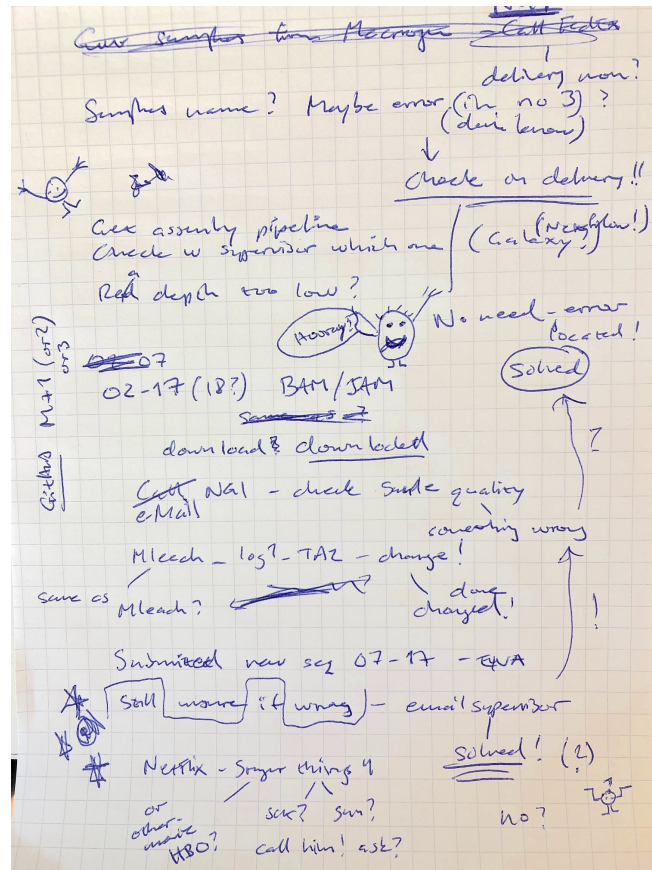 samples from - Call FedEx
delivery won?
Samples name? Maybe error (in no 3)?
(done know)
Check on delivery!!
assembly pipeline
Check w supervisor which one (Galaxy?) (Nextflow!)
Read depth too low?
Hooray!
No need - error
located!
Solved
GitHub M+1 (or 2)
or 3
07
02-17 (18?) BAM/
Same as 7
download? downloaded
Call NGI - check sample quality
e-Mail
something wrong
?
Mleach - log? - TA2 - change!
same as Mleach?
done
changed!
!
Submitted new seq 07-17 - ENA
Still unsure if wrong - email supervisor
solved! (?)
Netflix - Stranger things 4
or
other
movie
HBO?
call him! ask?
no?